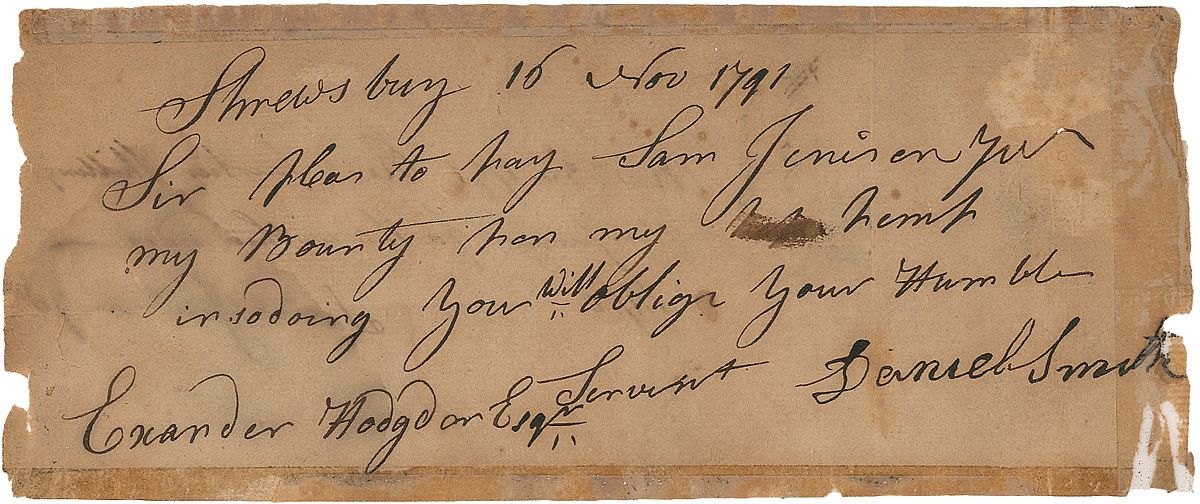 Shrewsbury 16 Nov 1791
Sir pleas to pay Sam Jenison Jur
my Bounty pon my hemp
in so doing you will oblige your Humble
Servint Daniel Smith
Exander Hodgdon Esqr